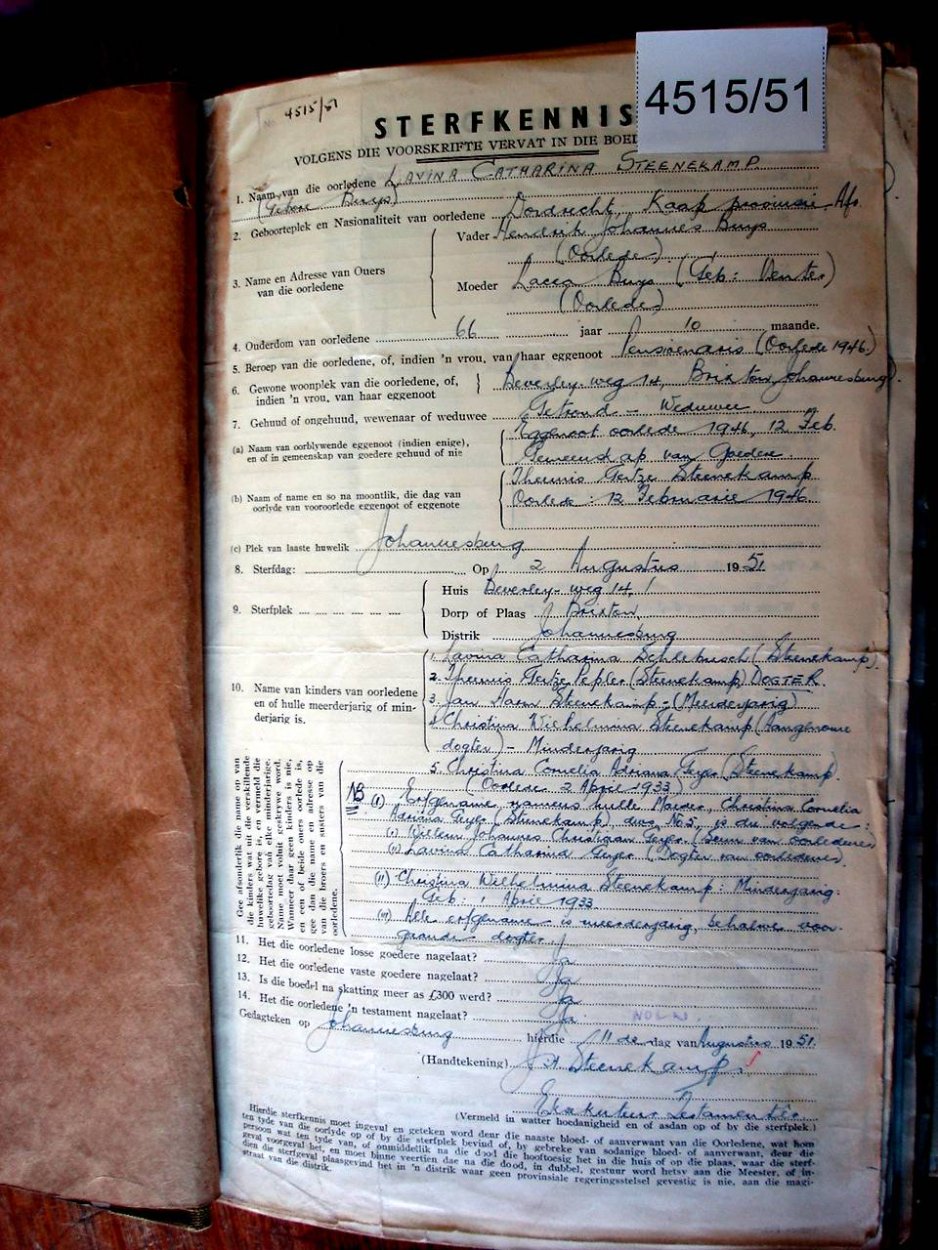 4515/51
No. 4515/51
STERFKENNIS
VOLGENS DIE VOORSKRIFTE VERVAT IN DIE BOED
1. Naam van die oorledene LAVINA CATHARINA STEENEKAMP
(Gebore Buys)
2. Geboorteplek en Nasionaliteit van oorledene Dordrecht, Kaap provinsie. Afr.
3. Name en Adresse van Ouers van die oorledene
Vader Hendrik Johannes Buys
(Oorlede)
Moeder Buys (Geb: Venter)
(Oorlede)
4. Ouderdom van oorledene 66 jaar 10 maande.
5. Beroep van die oorledene, of, indien 'n vrou, van haar eggenoot Pensioenaris (Oorlede 1946.)
6. Gewone woonplek van die oorledene, of, indien 'n vrou, van haar eggenoot Beverley-weg 14, Brixton, Johannesburg.
7. Gehuud of ongehuud, wewenaar of weduwee Getroud - Weduwee
(a) Naam van oorblywende eggenoot (indien enige), en of in gemeenskap van goedere gehuud of nie
Eggenoot oorlede 1946, 12 Feb.
Gemeenskap van Goedere.
(b) Naam of name en so na moontlik, die dag van oorlyde van vooroorlede eggenoot of eggenote
Theunis Gertze Steenekamp
Oorlede: 12 Februarie 1946
(c) Plek van laaste huwelik Johannesburg
8. Sterfdag: Op 2 Augustus 1951.
9. Sterfplek
Huis Beverley-weg 14,
Dorp of Plaas Brixton,
Distrik Johannesburg
10. Name van kinders van oorledene en of hulle meerderjarig of minderjarig is.
1. Lavina Catharina Schlebusch (Steenekamp).
2. Theunis Gertze Pepler (Steenekamp) DOGTER.
3. Jan Harm Steenekamp - (Meerderjarig)
4. Christina Wilhelmina Steenekamp (Aangenome
dogter) - Minderjarig
5. Christina Cornelia Adriana Geyer (Steenekamp).
(Oorlede 2 April 1933)
Gee afsonderlik die name op van
die kinders wat uit die verskillende
huwelike gebore is, en vermeld die
geboortedag van elke minderjarige.
Name moet voluit geskrywe word.
Wanneer daar geen kinders is nie,
en een of beide ouers oorlede is,
gee dan die name en adresse op
van die broers en susters van die
oorledene.
NB (I) Erfgename, namens hulle Moeder, Christina Cornelia
Adriana Geyer (Steenekamp), dus No 5, is die volgende:
(i) Willem Johannes Christiaan Geyer (Seun van oorledene)
(ii) Lavina Catharina Geyer (Dogter van oorledene).
(II) Christina Wilhelmina Steenekamp: Minderjarig.
Geb: 1 April 1933
(III) Alle erfgename is meerderjarig, behalwe voor-
grande dogter.
11. Het die oorledene losse goedere nagelaat? Ja
12. Het die oorledene vaste goedere nagelaat? Ja
13. Is die boedel na skatting meer as £300 werd? Ja
14. Het die oorledene 'n testament nagelaat? Ja
Gedagteken op Johannesburg hierdie 11 de dag van Augustus 1951.
(Handtekening) J. H. Steenekamp.
Eksekuteur Testamentêr
(Vermeld in watter hoedanigheid en of asdan op of by die sterfplek.)
Hierdie sterfkennis moet ingevul en geteken word deur die naaste bloed- of aanverwant van die Oorledene, wat hom
ten tyde van die oorlyde op of by die sterfplek bevind of, by gebreke van sodanige bloed- of aanverwant, deur die
persoon wat ten tyde van, of onmiddellik na die dood die hooftoesig het in die huis of op die plaas, waar die sterf-
geval voorgeval het, en moet binne veertien dae na die dood, in dubbel, gestuur word hetsy aan die Meester, of in-
dien die sterfgeval plaasgevind het in 'n distrik waar geen provinsiale regeringsstelsel gevestig is nie, aan die magi-
straat van die distrik.